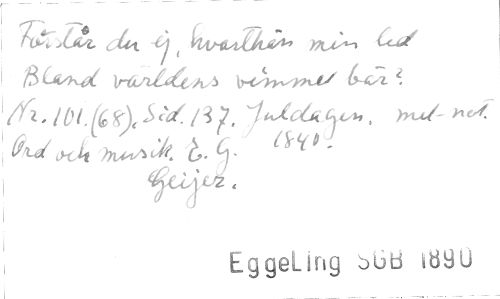 Förstår du ej, hvarthän min led
Bland världens vimmel bär?
Nr. 101.(68). Sid. 137. Juldagen. met-not.
Ord och musik. E. G. 1840.
Geijer.
EggeLing SGB 1890